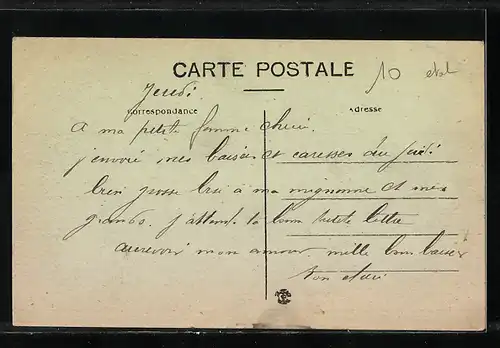 CARTE POSTALE
10
Jeudi.
Correspondance
Adresse
a ma petite femme cheri.
j'envoie mes baisers et caresses du Jeudi
bien grosse bri à ma mignonne et mes
grands. j'attend ta bonne petite lettre
aurevoir mon amour mille bons baisers
ton cheri